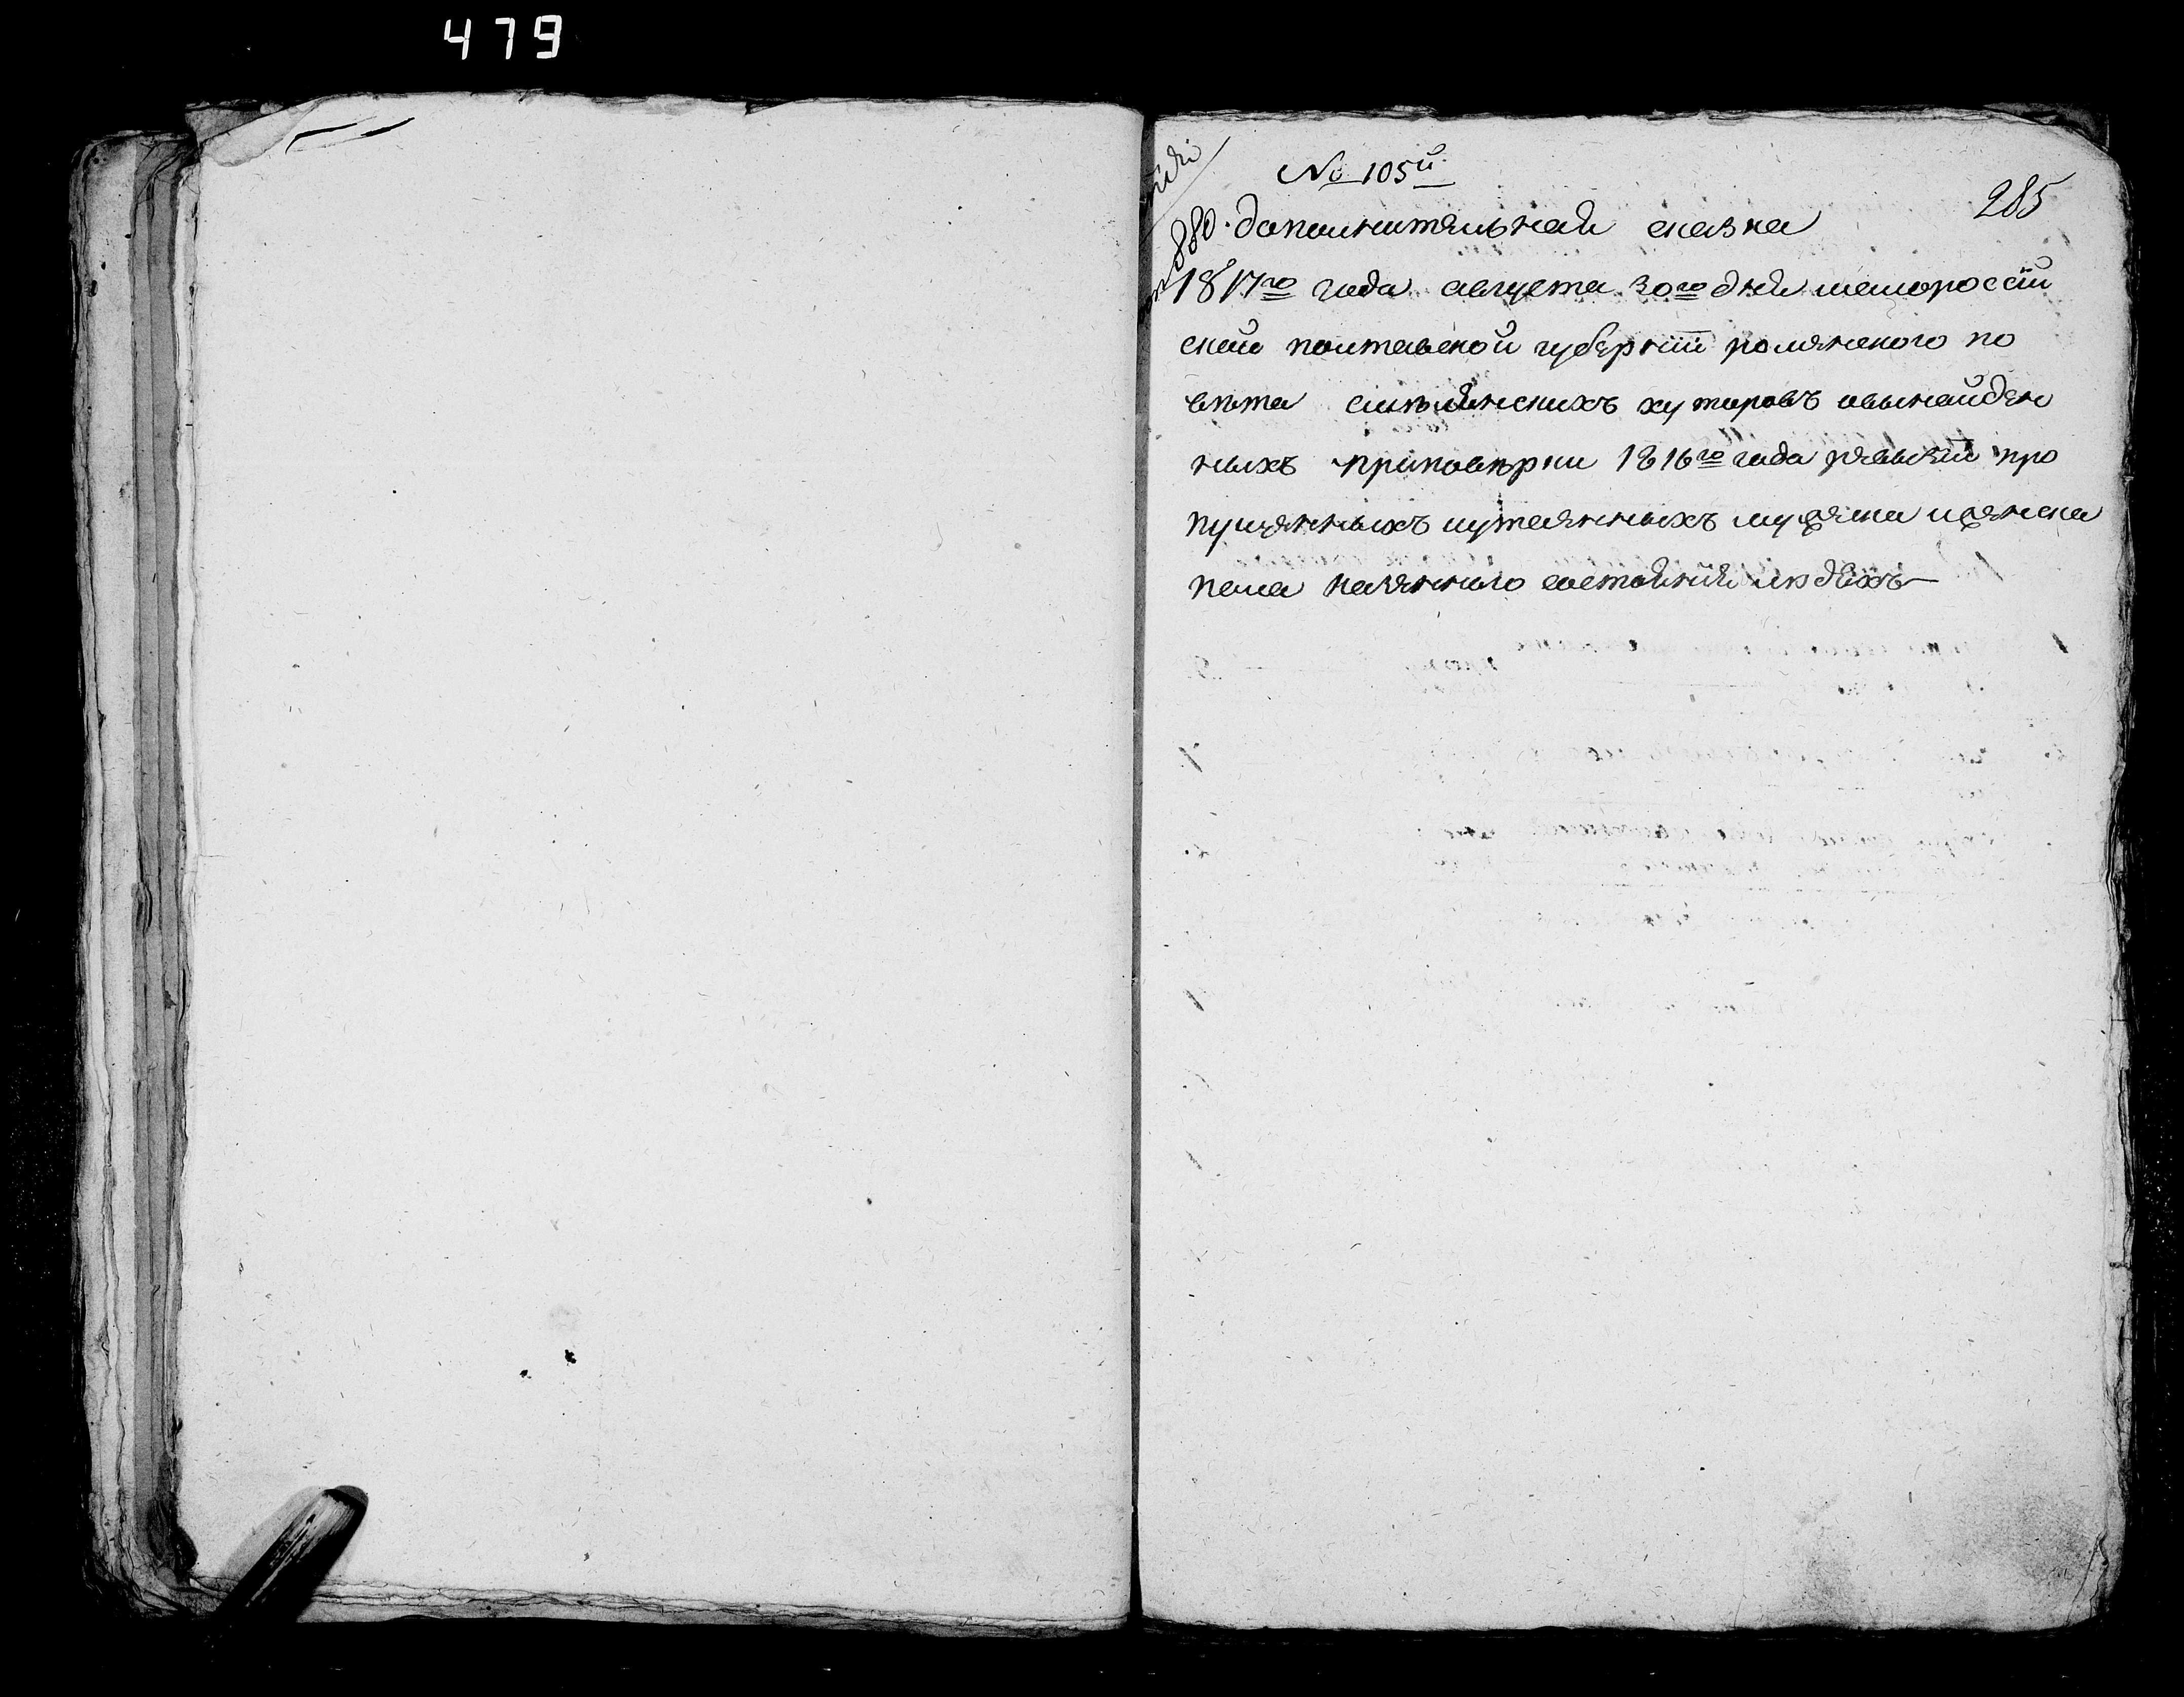 479
№ 105й
285
880. дополнительная сказка
1817го года августа 30го дня малороссій
ской полтавской губерніи роменского по
вѣта хуторовъ обынайден
ныхъ приповѣрки 1816го года ревизіи про
пущенныхъ иутаенныхъ мужеска иженска
пола казенного состоянія людехъ